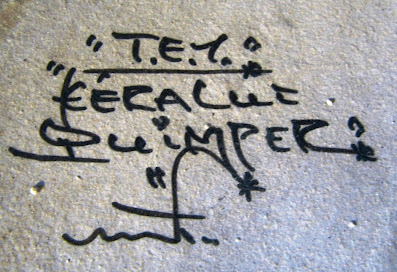 "T.E.1."
"KÉRALUC
QUIMPER"